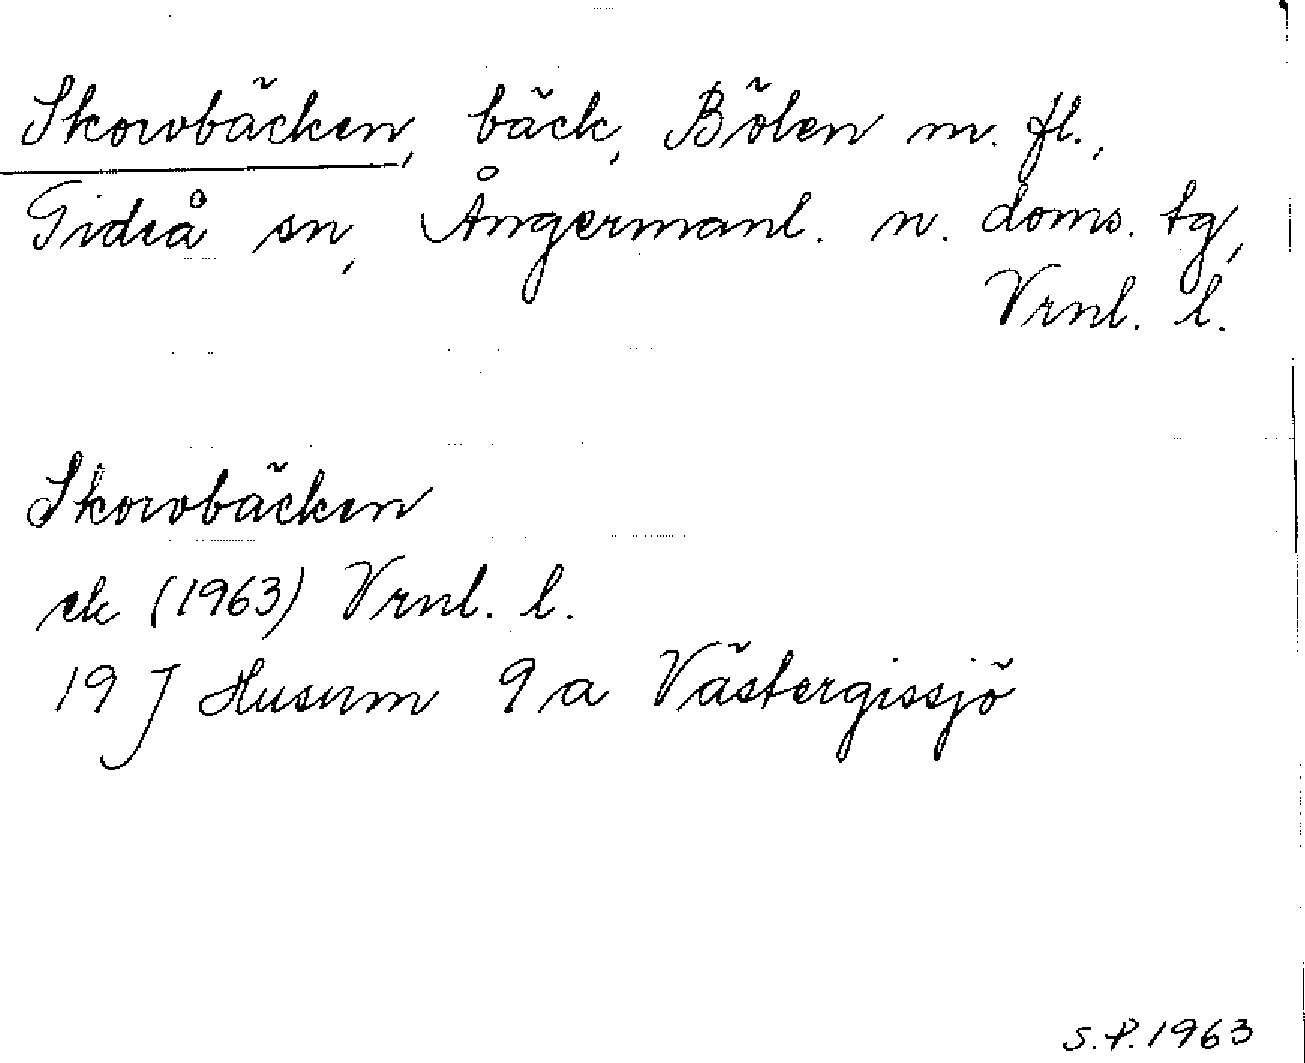 Skorvbäcken, bäck, Bölen m. fl.,
Gideå sn, Ångermanl. n. doms. tg,
Vrnl. l.
Skorvbäcken
ek (1963) Vrnl. l.
19 J Husum 9 a Västergissjö
S.P. 1963